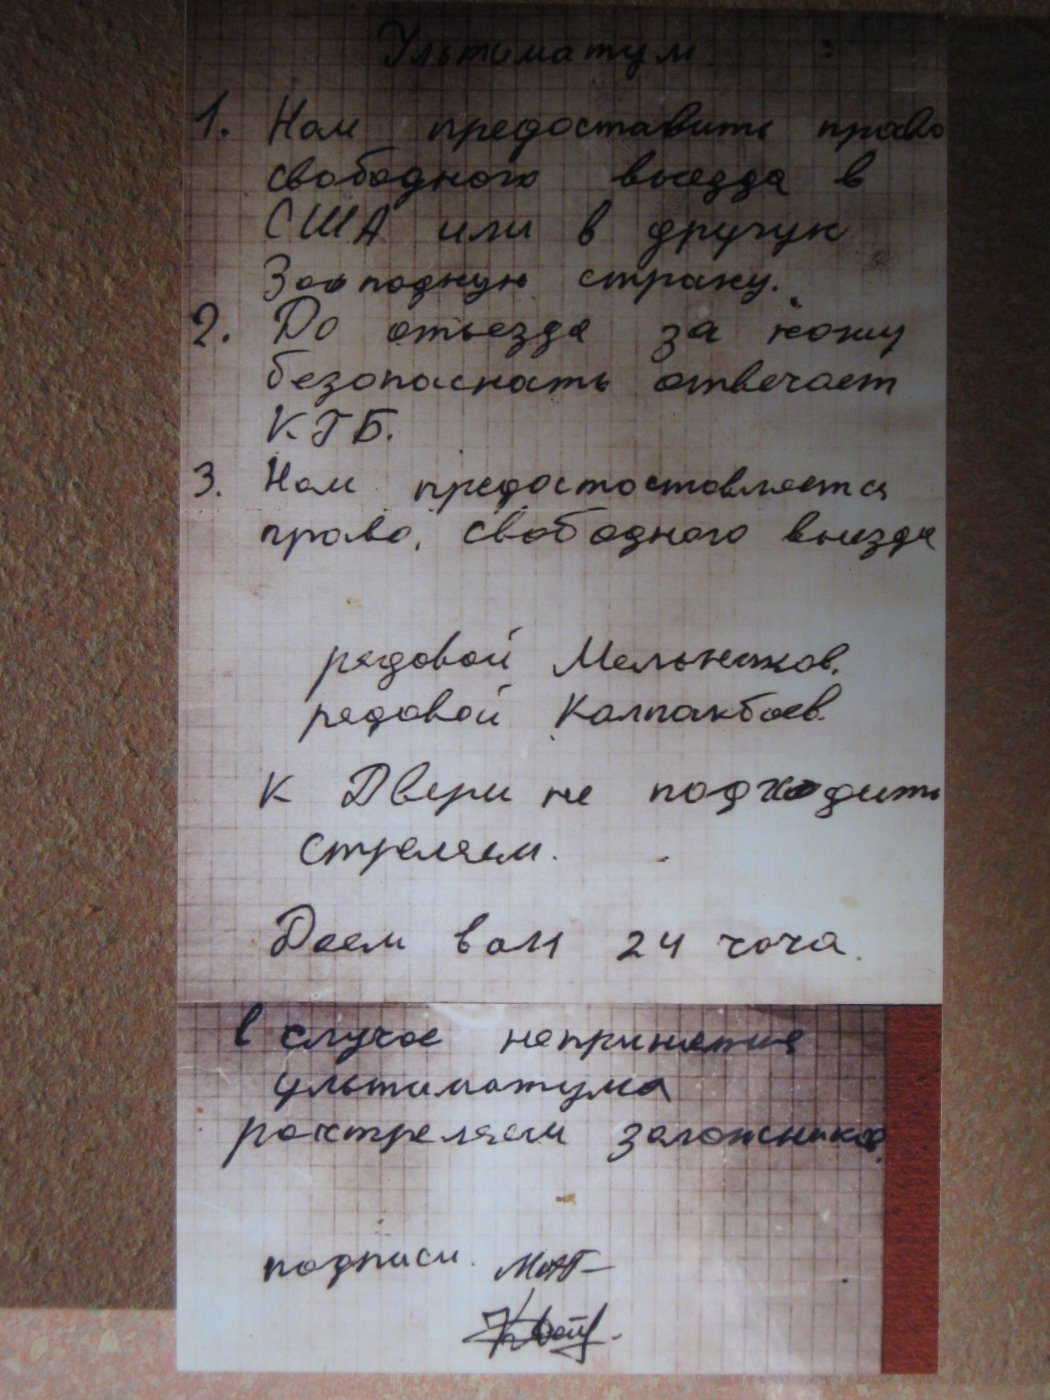 Ультиматум:
1. Нам предоставить право
свободного выезда в
США или в другую
Западную страну.
2. До отъезда за нашу
безопасность отвечает
КГБ.
3. Нам предостоставляется
право, свободного выезда
рядовой Мельников.
рядовой Колпакбоев.
К Двери не подходить
стреляем.
Даем вам 24 часа.
в случае непринятия
ультиматума
расстреляем заложников.
подписи.